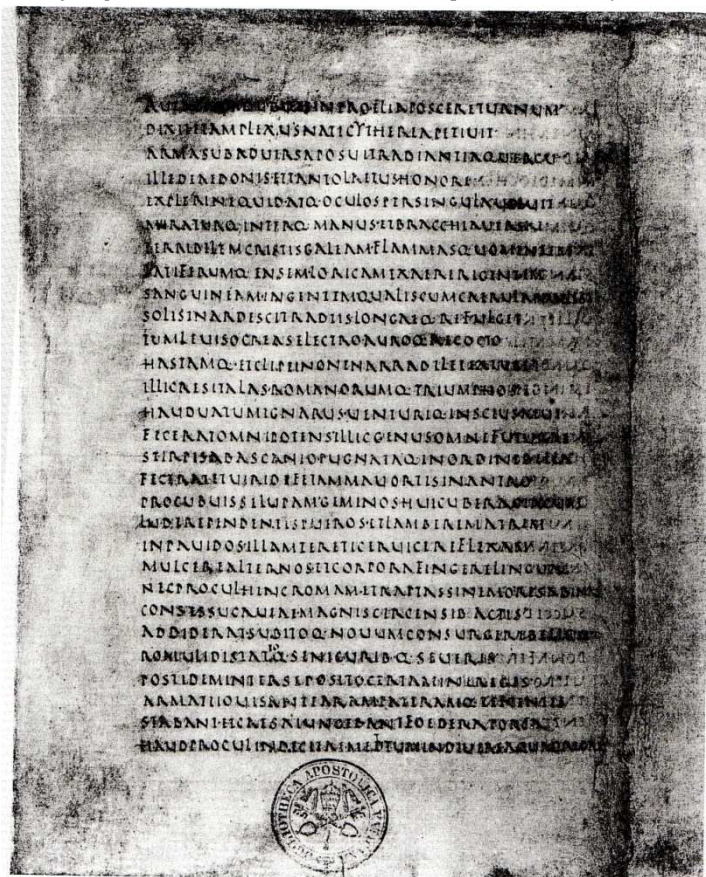 AUT DUBITES INPROELIAPOSCERETURNUM
DIXITETAMPLEXUSNATICYTHEREAPETIUIT
ARMASUBADUERSAPOSUITRADIANTIAQUERCU
ILLEDEAEDONISETTANTOLAETUSHONORE
EXPLERINEQUITATQ·OCULOSPERSINGULAUOLUIT
MIRATURQ·INTERQ·MANUSETBRACCHIAUERSAT
TERRIBILEMCRISTISGALEAMFLAMMASQ·UOMENTEM
FATIFERUMQ·ENSEMLORICAMEXAERERIGENTEM
SANGUINEAMINGENTEMQUALISCUMCAERULANUBES
SOLISINARDESCITRADIISLONGEQ·REFULGET
TUMLEUISOCREASELECTROAUROQ·RECOCTO
HASTAMQ·ETCLIPEINONENARRABILETEXTUM
ILLICRESITALAS·ROMANORUMQ·TRIUMPHOS
HAUDUATUMIGNARUSUENTURIQ·INSCIUSAEUI
FECERATOMNIPOTENSILLICGENUSOMNEFUTURAE
STIRPISABASCANIOPUGNATAQ·INORDINEBELLA
FECERATETUIRIDIFETAMMAUORTISINANTRO
PROCUBUISSELUPAMGEMINOSHUICUBERACIRCUM
LUDEREPENDENTISPUEROSETLAMBEREMATREM
INPAUIDOSILLAMTERETICERUICEREFLEXAM
MULCEREALTERNOSETCORPORAFINGERELINGUA
NECPROCULHINCROMAMETRAPTASSINEMORESABINAS
CONSESSUCAUEAEMAGNISCIRCENSIB·ACTIS
ADDIDERATSUBITOQ·NOUUMCONSURGEREBELLUM
ROMULIDISTATIOQ·SENICURIBQ·SEUERIS
POSTIDEMINTERSEPOSITOCERTAMINEREGES
ARMATIIOUISANTEARAMPATERASQ·TENENTES
STABANTETCAESAIUNGEBANTFOEDERAPORCA
HAUDPROCULINDECITAEMETTUMINDIUERSAQUADRIGAE
BIBLIOTHECA APOSTOLICA VATICANA